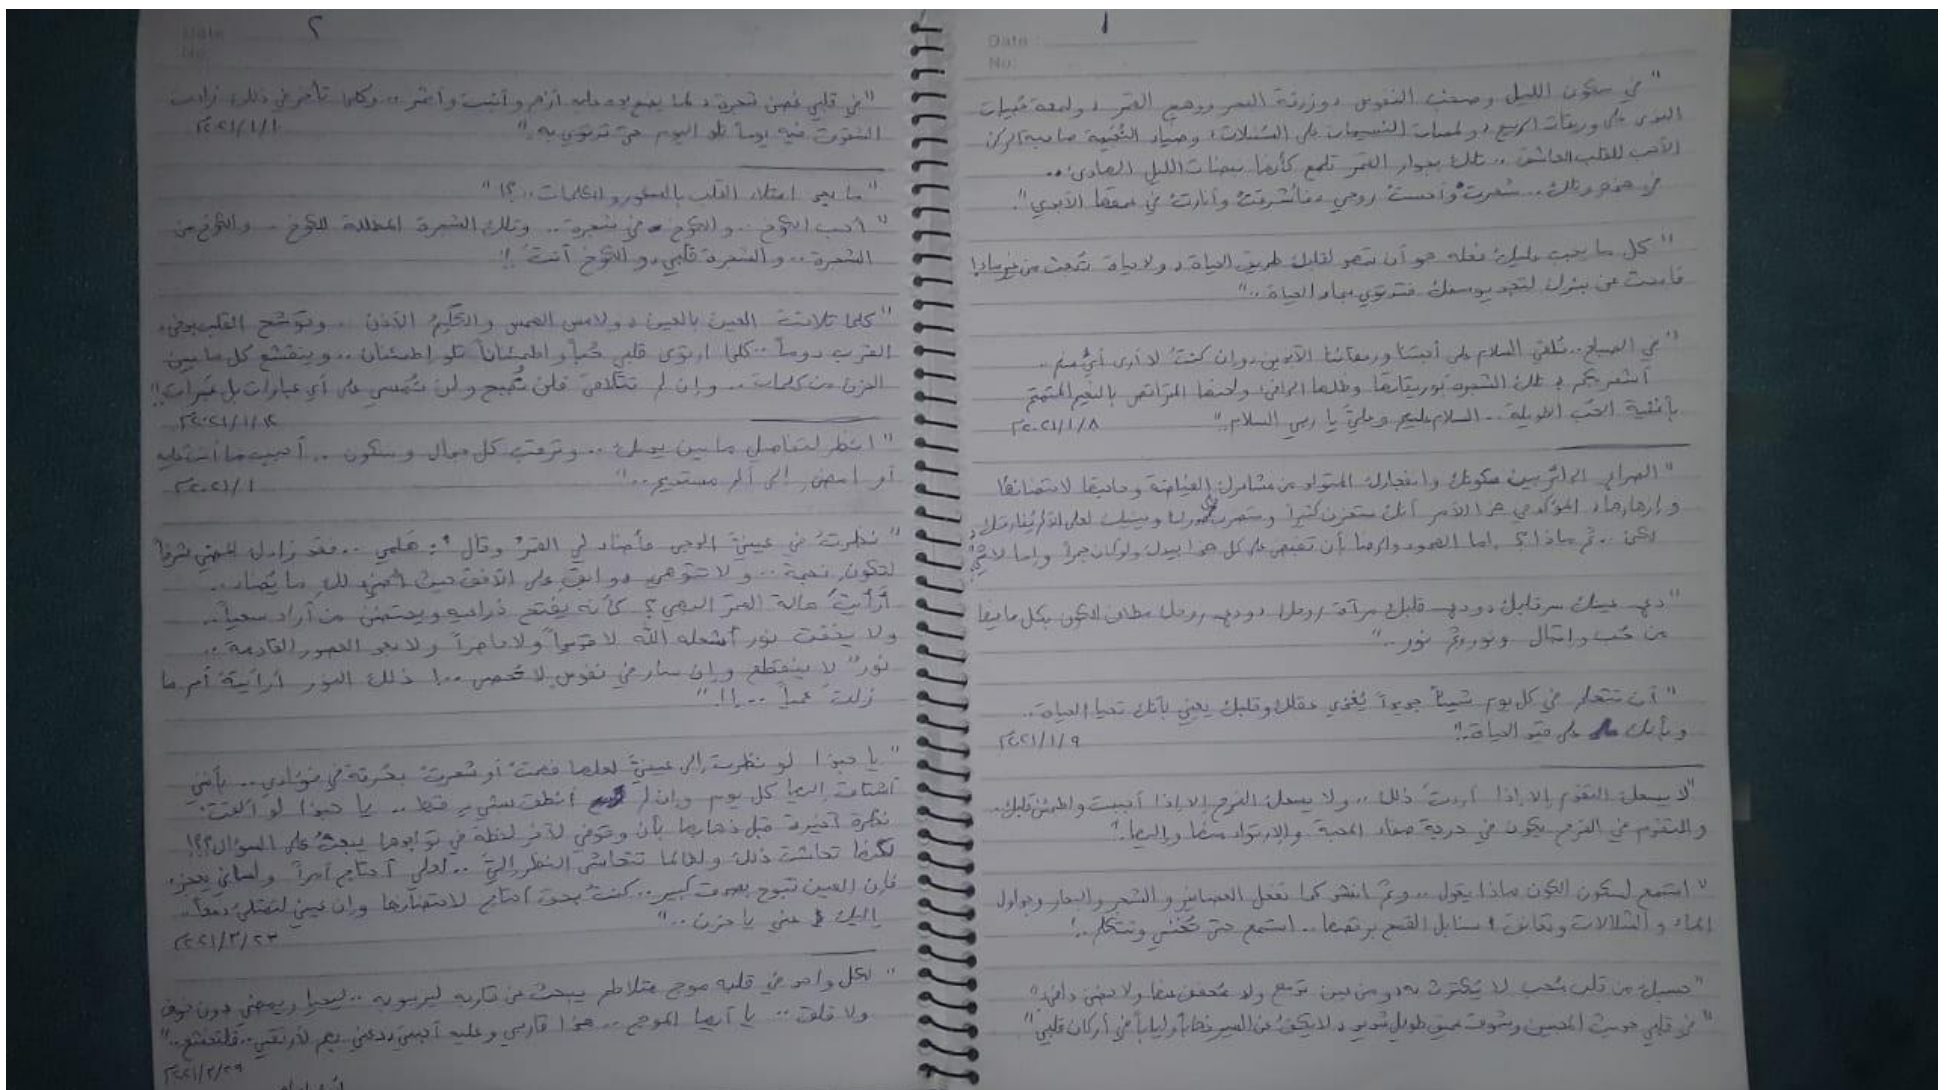 ١
Date :
No:
"في سكون الليل وصخب النفوس، وزرقة البحر ووهج القمر، ولمعة حبيبات
الندى على وريقات الربيع، ولمسات النسيمات على الشلالات، وضياء النجمة صاحبة الركن
الأحب للقلب العاشق .. تلك بجوار القمر تلمع كأنها نبضات الليل الهادئ ..
في هذه وتلك .. شعرت وأحسست روحي فأشرقت وأنارت في عمقها الأبدي."
"كل ما يجب عليك فعله هو أن تمهد لقلبك طريق الحياة، ولا حياة تبعث من غير ماء!
فابحث عن بئرك لتجد يوسفك فترتوي بماء الحياة .."
"في الصباح .. نلقي السلام على أحبتنا ورفقائنا الأبديين، وإن كنت لا أرى أي منهم ..
أشعر بكم، تلك الشجرة بوريقاتها وظلها الدافئ ولحنها المتراقص بالنغم المتمتم
بأغنية الحب الطويلة .. السلام عليكم وعلي يا ربي السلام." ٢٠٢١/١/٨
"الصراع الدائر بين سكونك وانفجارك المتولد من مشاعرك الفياضة وحاجتها لاحتضانها
وإزهارها، المؤكد في هذا الأمر أنك ستحزن كثيراً
لكن .. ثم ماذا؟ إما الصمود والرضا بأن تقبض على كل هذا بيدك ولو كان جمراً وإما لا شيء!"
"دع عينيك سر قلبك، ودع قلبك مرآة روحك، ودع روحك ملاك الكون بكل ما فيها
من حب وامتثال ونور ثم نور .."
"أن تتعلم في كل يوم شيئاً جديداً يُغذي عقلك وقلبك يعني بأنك تحيا الحياة ..
وبأنك على قيد الحياة.!" ٢٠٢١/١/٩
"لا يسعك التقدم إلا إذا أردت ذلك .. ولا يسعك الفرح إلا إذا أحببت واطمئن قلبك.
والتقدم في الفرح يكون في درجة صفاء المحبة والارتواء منها وإليها.!"
"استمع لسكون الكون ماذا يقول .. ثم انشد كما تفعل العصافير والشجر والبحار وجداول
الماء والشلالات وتعانق سنابل القمح برقصها .. استمع حتى تُغني وتتكلم ..!"
"حسبك من قلب مُحب لا يكترث
"في قلبي حديث المحبين وصوت عميق طويل شديد، لا يكف عن السير ذهاباً وإياباً في أركان قلبي"
٢
Date
No
"في قلبي غصن شجرة، كلما أزهر وأنبت وأثمر .. وكلما تأخر في ذلك زادت
السقوت فيه يوماً تلو اليوم حتى ترتوي به." ٢٠٢١/١/١
"ما هو امتلاء القلب بالسطور والكلمات ..؟!"
"أحب الكوخ .. والكوخ في شجرة .. وتلك الشجرة المظللة للكوخ .. والكوخ من
الشجرة .. والشجرة قلبي، والكوخ أنت !!"
"كلما تلاقت العين بالعين، ولامس الهمس والكلم الأذن .. وتوشح القلب بدفء
القرب دوماً .. كلما ارتوى قلبي حُباً واطمئناناً تلو اطمئنان .. وينقشع كل ما بين
الحزن من كلمات .. وإن لم تتلاقى فلن تُبهج ولن تُمسي على أي عبارات بل عَبرات!"
٢٠٢١/١/١٤
"انظر لتفاصيل ما بين يديك .. وترقب كل جمال وسكون .. أحبب ما أنت عليه
أو امضِ إلى ألم مستديم .." ٢٠٢١/١
"نظرت في عينيّ الدجى فأضاء لي القمر وقال: هلمي .. فقد زادك المضي شرفاً
لتكون نجمة .. ولا تتوهمي، وابق على الأفق حيث
أرأيت هالة القمر البهي؟ كأنه يفتح ذراعيه ويحتضن من أراد سعياً ..
ولا يخفت نور أشعله الله لا قديماً ولا حاضراً ولا بعد العصور القادمة ..
نور لا ينقطع وإن سار في نفوس لا تُحصى ..! ذلك النور أرأيته أم ما
زلت عمياً ..!!"
"يا حبذا لو نظرت إلى عينيّ لعلها فهمت أو شعرت بحُرقة في فؤادي .. بأنني
أشتاق إليها كل يوم وإن لم أنطق بشيء قط .. يا حبذا لو ألقت
نظرة أخيرة قبل ذهابها بأن وقوفي لآخر لحظة في توديعها يبعث على السؤال؟؟!
لكنها تحاشت ذلك ولطالما تتحاشى النظر إليّ .. لعلي أحتاج أمراً ولساني يعجز
فإن العين تبوح بصمت كبير .. كنت بحق أحتاج لاحتضانها وإن عيني لتمتلئ دمعاً ..
إليك عني يا حزن .." ٢٠٢١/٢/٢٣
"لكل واحد في قلبه موج متلاطم يبحث عن قاربه ليرسو به .. ليحيا ويمضي دون خوف
ولا قلق .. يا أيها الموج .. هذا قاربي وعليه أحبتي، دعني بهم لأرتقي .. فلتخشع .."
٢٠٢١/٢/٢٩